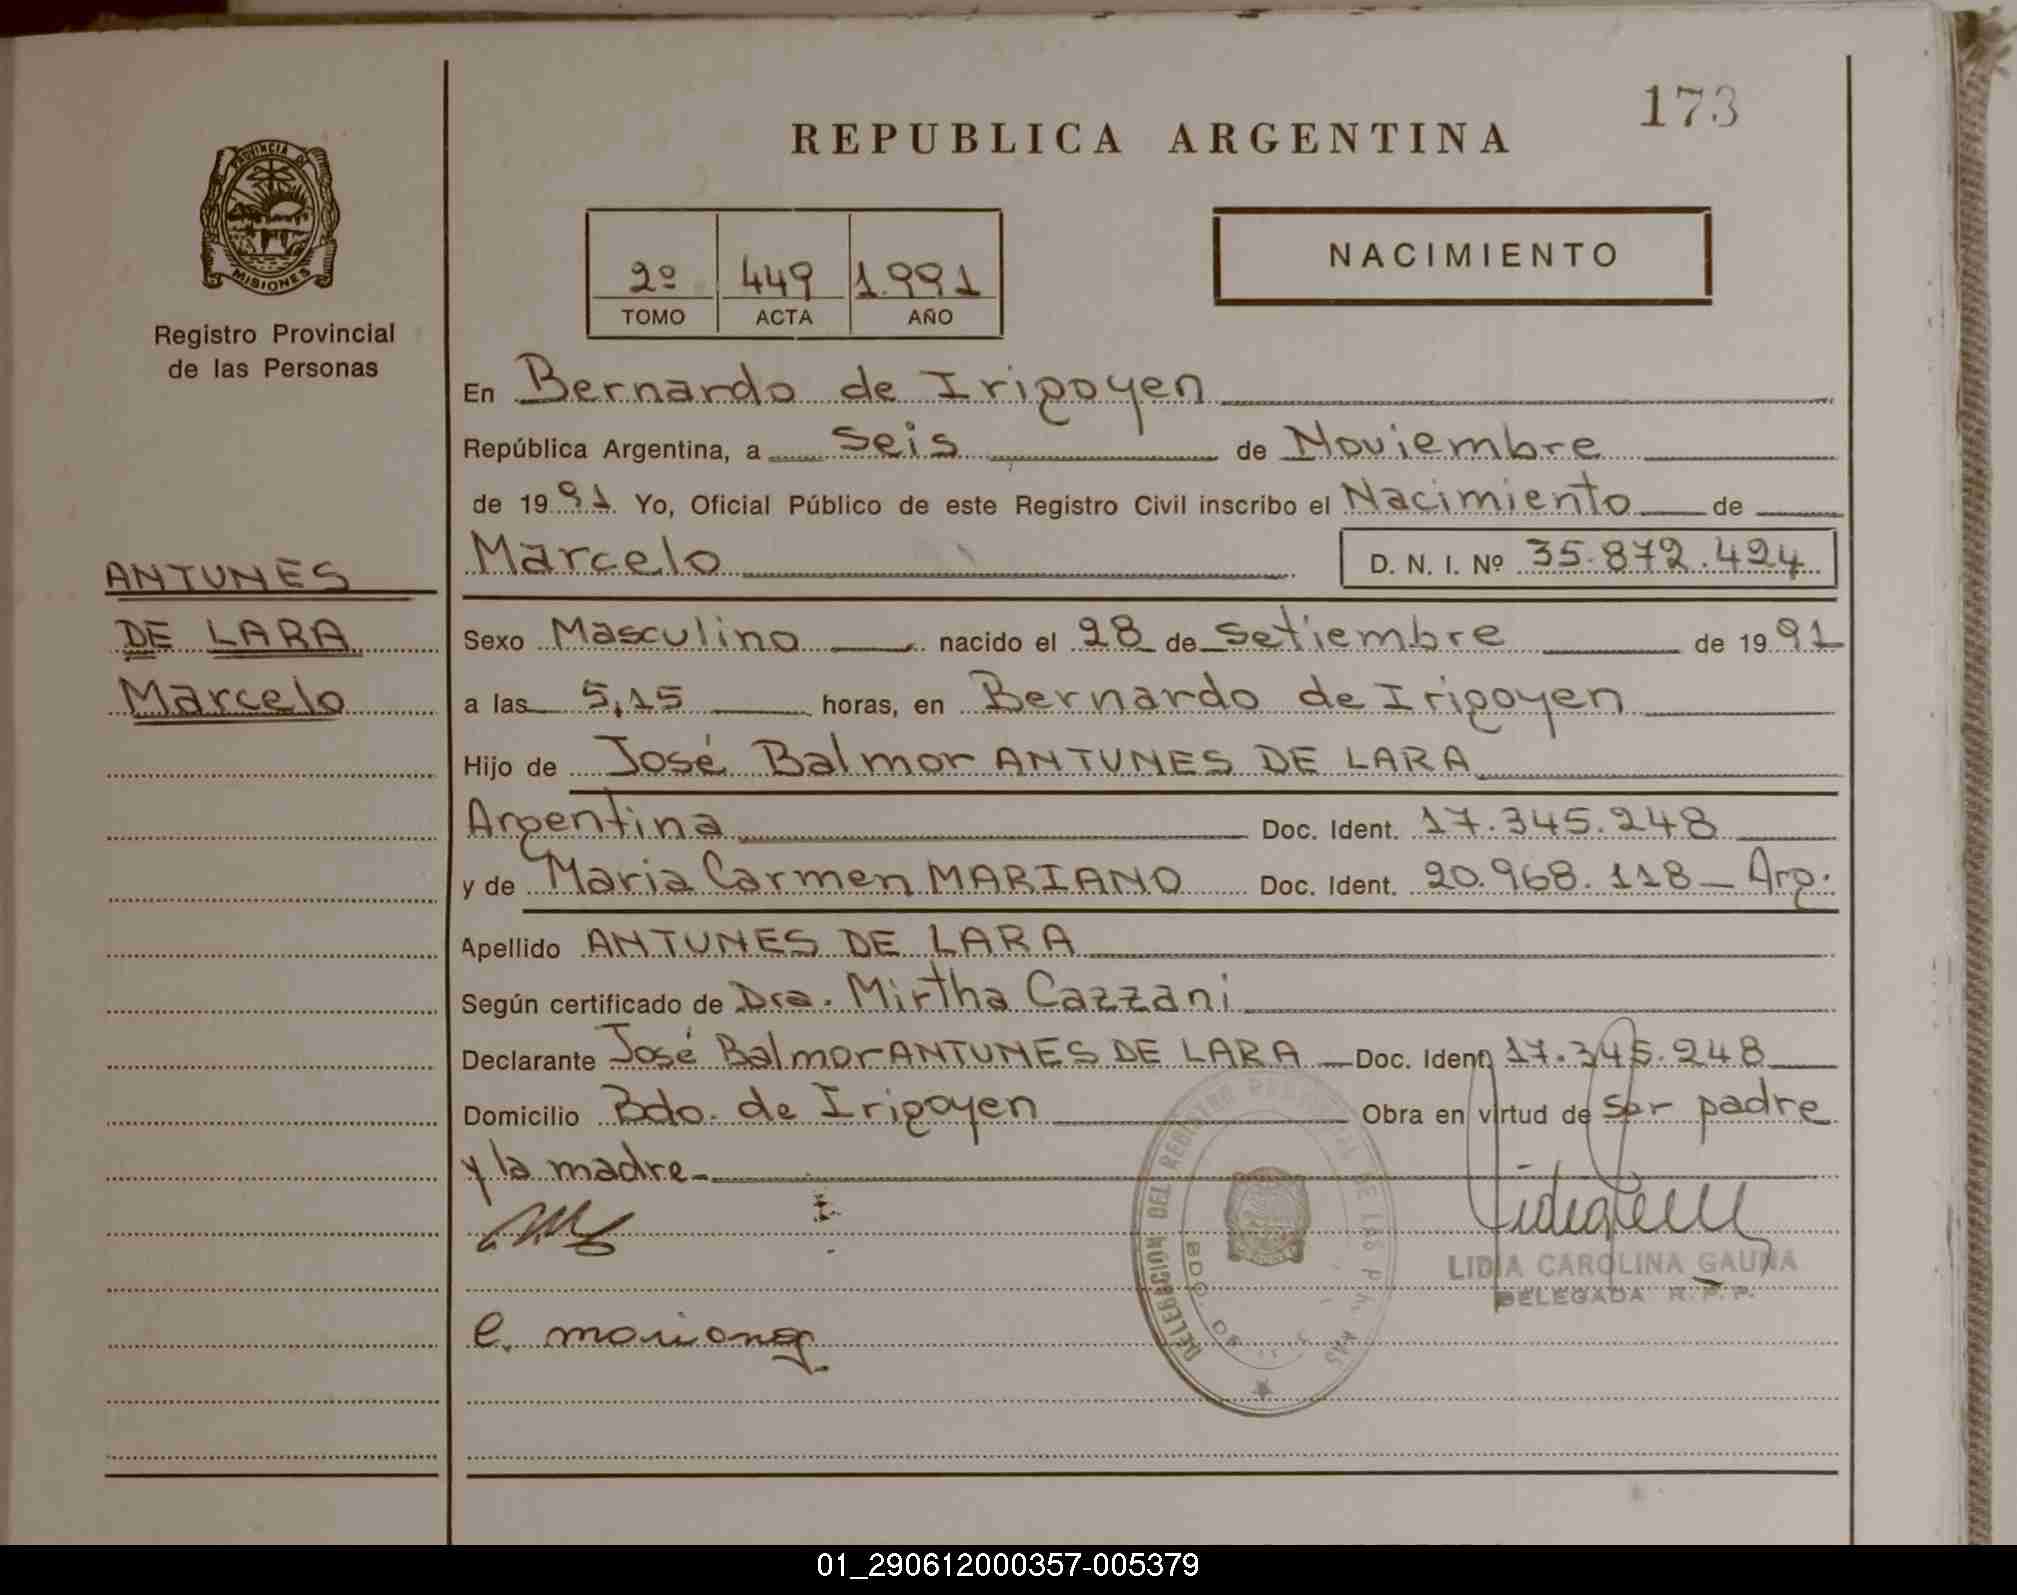 173
REPUBLICA ARGENTINA
PROVINCIA DE
MISIONES
Registro Provincial
de las Personas
NACIMIENTO
2º 449 1.991
TOMO ACTA AÑO
En Bernardo de Irigoyen
República Argentina, a seis de Noviembre
de 1991 Yo, Oficial Público de este Registro Civil inscribo el Nacimiento de
Marcelo D. N. I. Nº 35.872.424
ANTUNES
DE LARA
Marcelo
Sexo Masculino nacido el 28 de Setiembre de 1991
a las 5,15 horas, en Bernardo de Irigoyen
Hijo de José Balmor ANTUNES DE LARA
Argentina Doc. Ident. 17.345.248
y de Maria Carmen MARIANO Doc. Ident. 20.968.118 - Arg.
Apellido ANTUNES DE LARA
Según certificado de Dra. Mirtha Cazzani
Declarante José Balmor ANTUNES DE LARA Doc. Ident. 17.345.248
Domicilio Bdo. de Irigoyen Obra en virtud de ser padre
y la madre
DELEGACIÓN DEL REGISTRO PROVINCIAL DE LAS PERSONAS
BDO. DE
LIDIA CAROLINA GAUNA
DELEGADA R. P. P.
01_290612000357-005379